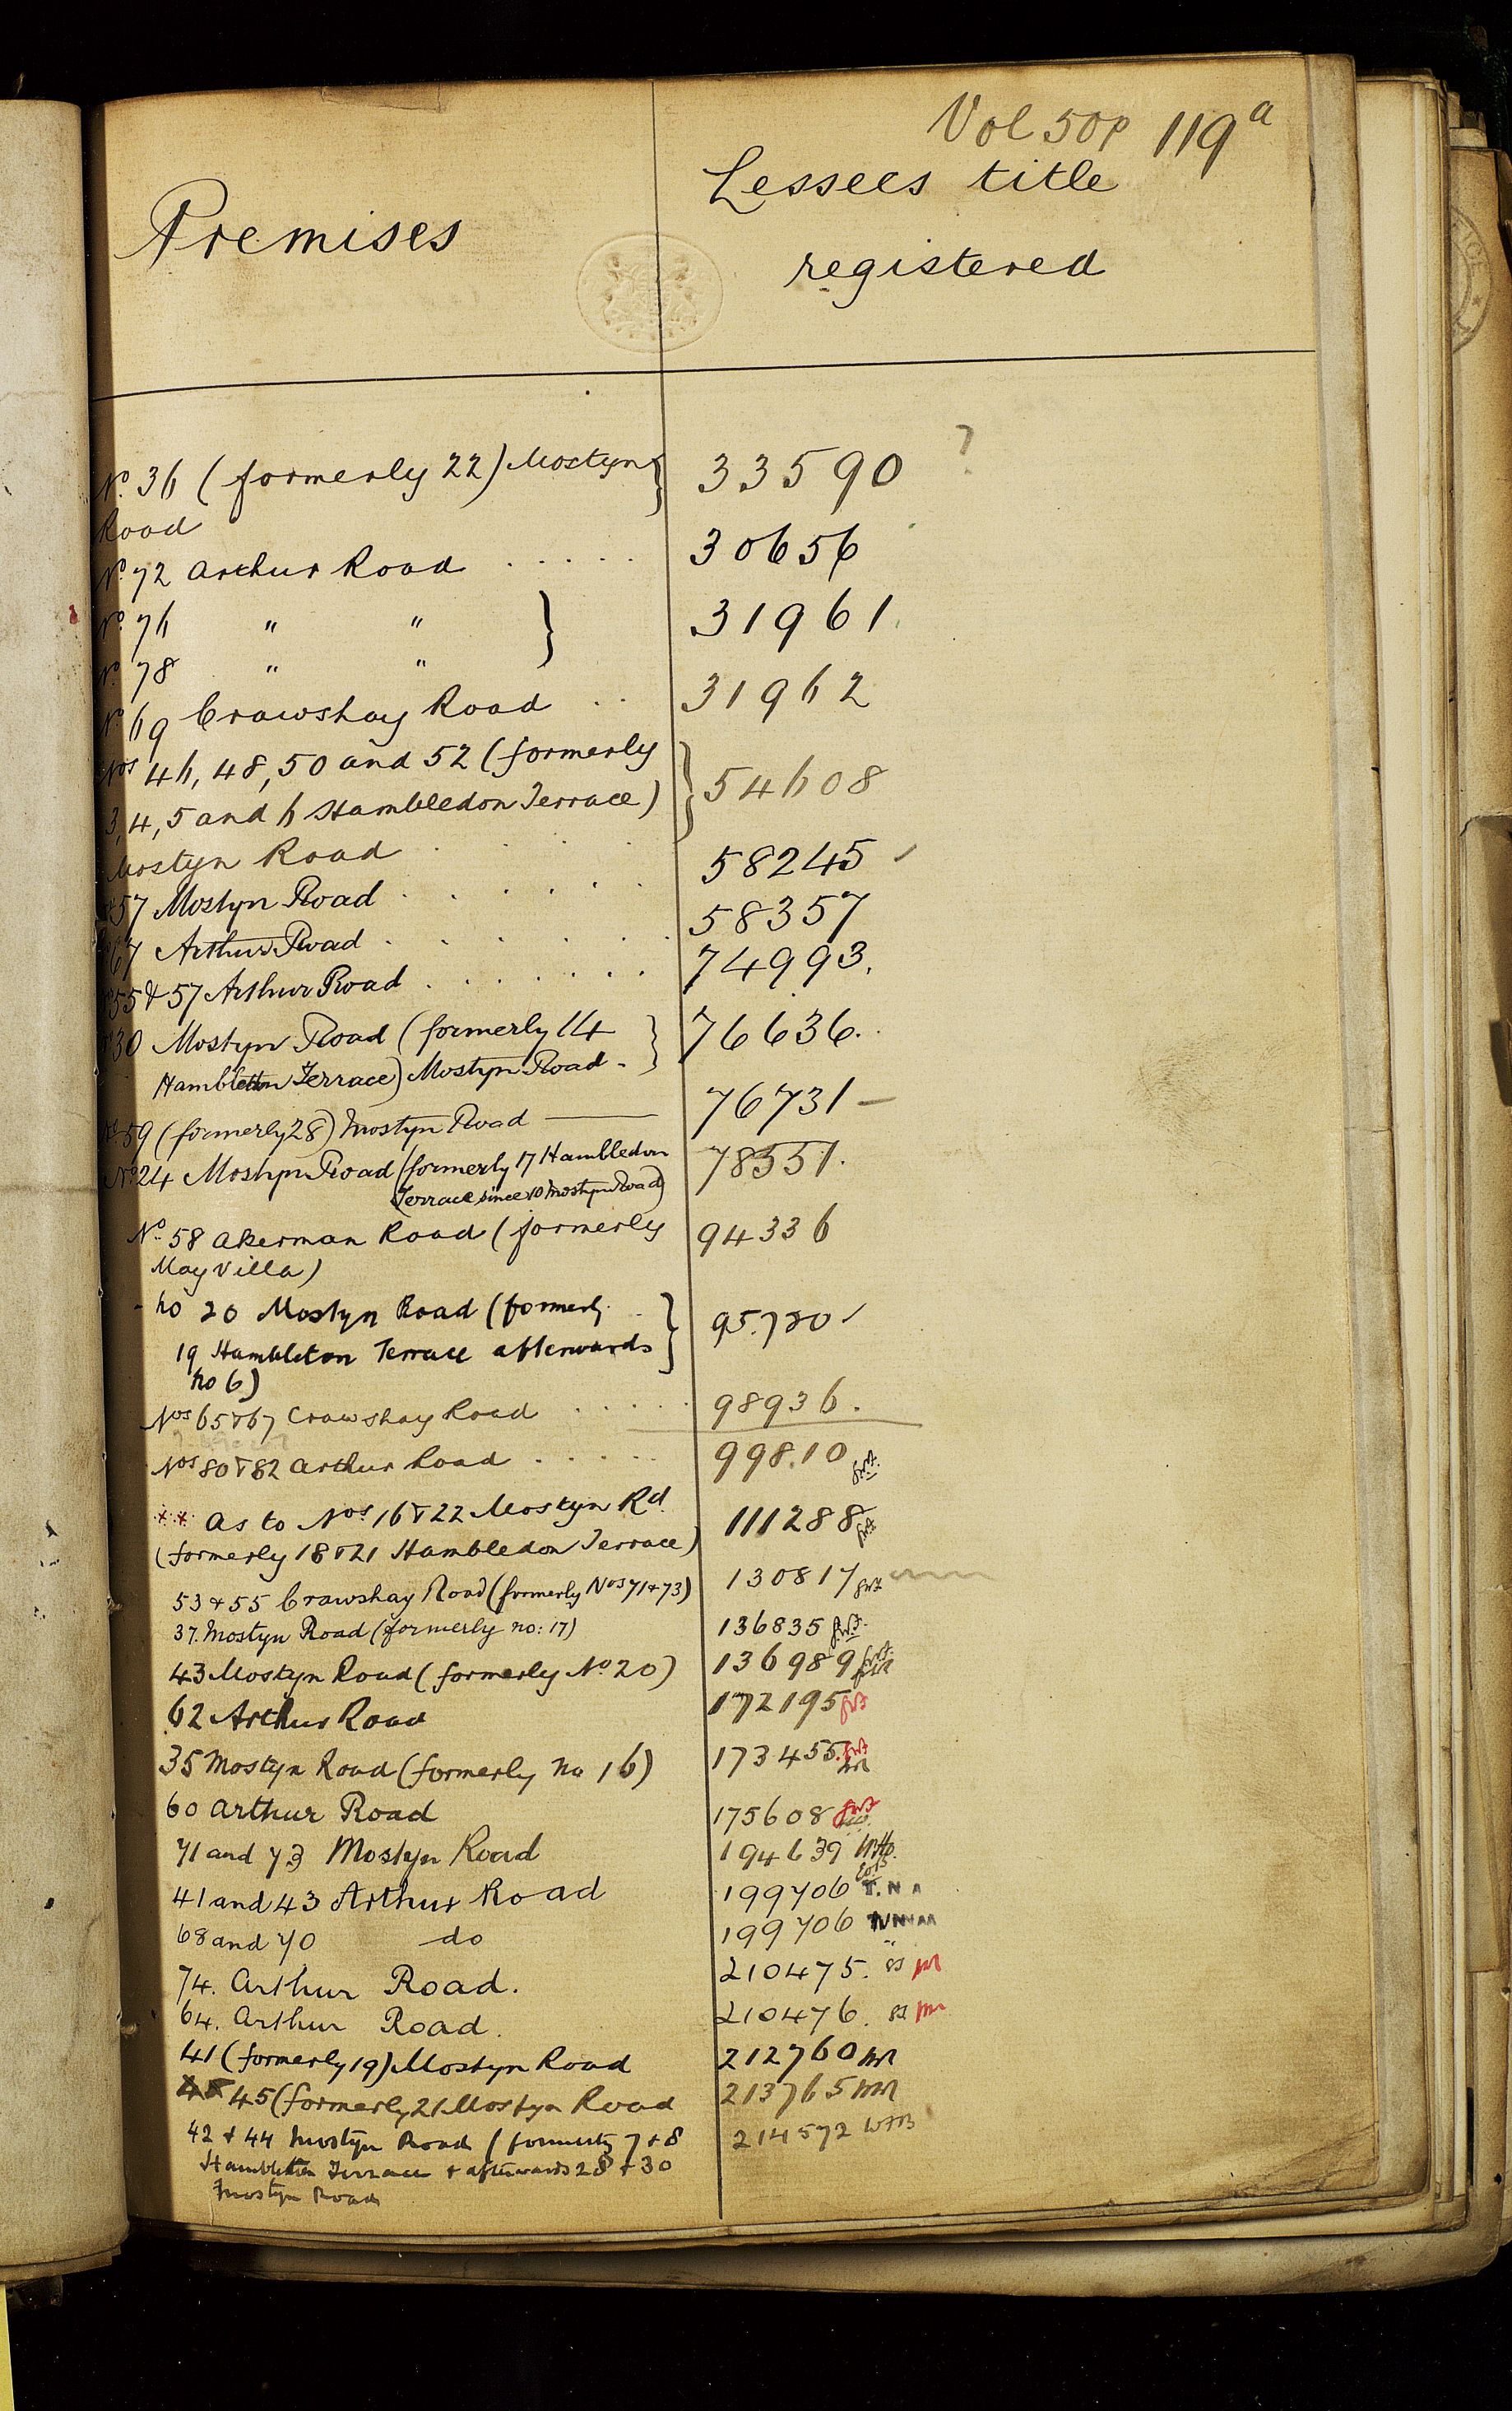 Vol 50 p 119a
Premises
Lessees title
registered
No. 36 (formerly 22) Mostyn } 33590 ?
Road
No. 72 Arthur Road . . . . . 30656
No. 76 " " } 31961.
No. 78 " "
No. 69 Crawshay Road . . 31962
Nos 46, 48, 50 and 52 (formerly
3, 4, 5 and 6 Hambledon Terrace) } 54608
Mostyn Road . . . .
57 Mostyn Road . . . . . . 58245
67 Arthur Road . . . . . . 58357
55 & 57 Arthur Road . . . . . . 74993.
30 Mostyn Road (formerly 14 } 76636.
Hambleton Terrace) Mostyn Road -
59 (formerly 28) Mostyn Road — 76731 —
No. 24 Mostyn Road (formerly 17 Hambledon 78551.
Terrace since 10 Mostyn Road)
No. 58 Akerman Road (formerly 94336
May Villa)
- No 20 Mostyn Road (formerly
19 Hambleton Terrace afterwards } 95780
No 6)
Nos 65 & 67 Crawshay Road . . . . . 98936.
Nos 80 & 82 Arthur Road . . . . . 99810
** As to Nos. 16 & 22 Mostyn Rd. 111288
(formerly 18 & 21 Hambledon Terrace)
53 & 55 Crawshay Road (formerly Nos 71 & 73) 130817
37. Mostyn Road (formerly no: 17) 136835
43 Mostyn Road (formerly No 20) 136989
62 Arthur Road 172195
35 Mostyn Road (formerly No 16) 173455
60 Arthur Road 175608
71 and 73 Mostyn Road 194639
41 and 43 Arthur Road 199706 T.N A
68 and 70 do 199706
74. Arthur Road. 210475.
64. Arthur Road. 210476.
41 (formerly 19) Mostyn Road 212760
45 (formerly 21 Mostyn Road 213765
42 & 44 Mostyn Road (formerly 7 & 8 214572
Hambleton Terrace & afterwards 28 & 30
Mostyn Road